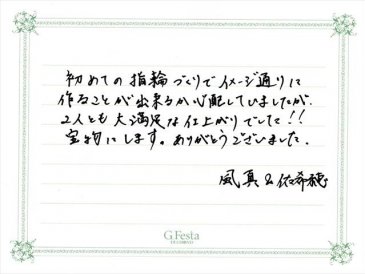 初めての指輪づくりでイメージ通りに
作ることが出来るか心配していましたが、
2人とも大満足な仕上がりでした!!
宝物にします。ありがとうございました。
風真&佑希穂
G.Festa